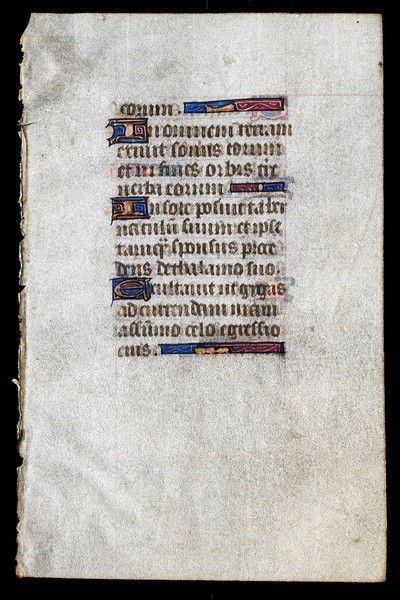 corum.
In omnem terram
exiuit sonus eorum
et in fines orbis t̄r̄e
uerba eorum
In sole posuit taber
naculum suum et ipse
tamq̄ sponsus proce
dens de thalamo suo.
Exultauit ut gygas
ad currendam uiam
a summo celo egressio
eius.